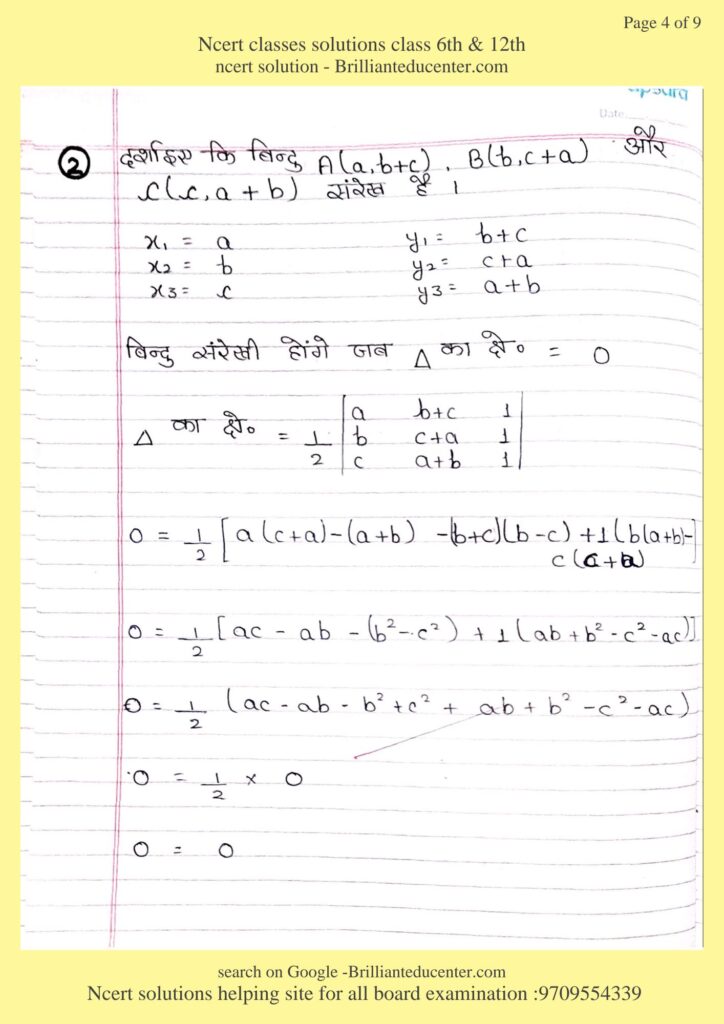 Page 4 of 9
Ncert classes solutions class 6th & 12th
ncert solution - Brillianteducenter.com
apsara
Date
2 दर्शाइए कि बिन्दु A(a, b+c), B(b, c+a) और
C(c, a + b) संरेख है ।
x₁ = a y₁ = b+c
x₂ = b y₂ = c+a
x₃ = c y₃ = a+b
बिन्दु संरेखी होंगे जब Δ का क्षे० = 0
Δ का क्षे० = 1/2 | a b+c 1 |
| b c+a 1 |
| c a+b 1 |
0 = 1/2 [ a(c+a)-(a+b) -(b+c)(b-c) +1(b(a+b)-
c(c+a)
0 = 1/2 [ac - ab - (b² - c²) + 1(ab + b² - c² - ac)]
0 = 1/2 (ac - ab - b² + c² + ab + b² - c² - ac)
0 = 1/2 × 0
0 = 0
search on Google -Brillianteducenter.com
Ncert solutions helping site for all board examination :9709554339